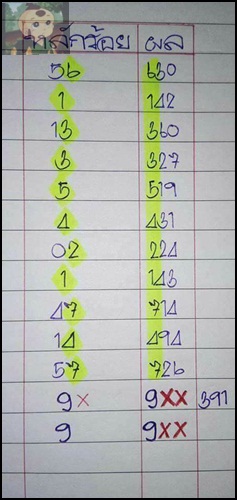 หลักร้อย ผล
56 630
1 142
13 360
3 327
5 519
4 431
02 224
1 143
47 714
14 494
57 726
9x 9xx 391
9 9xx